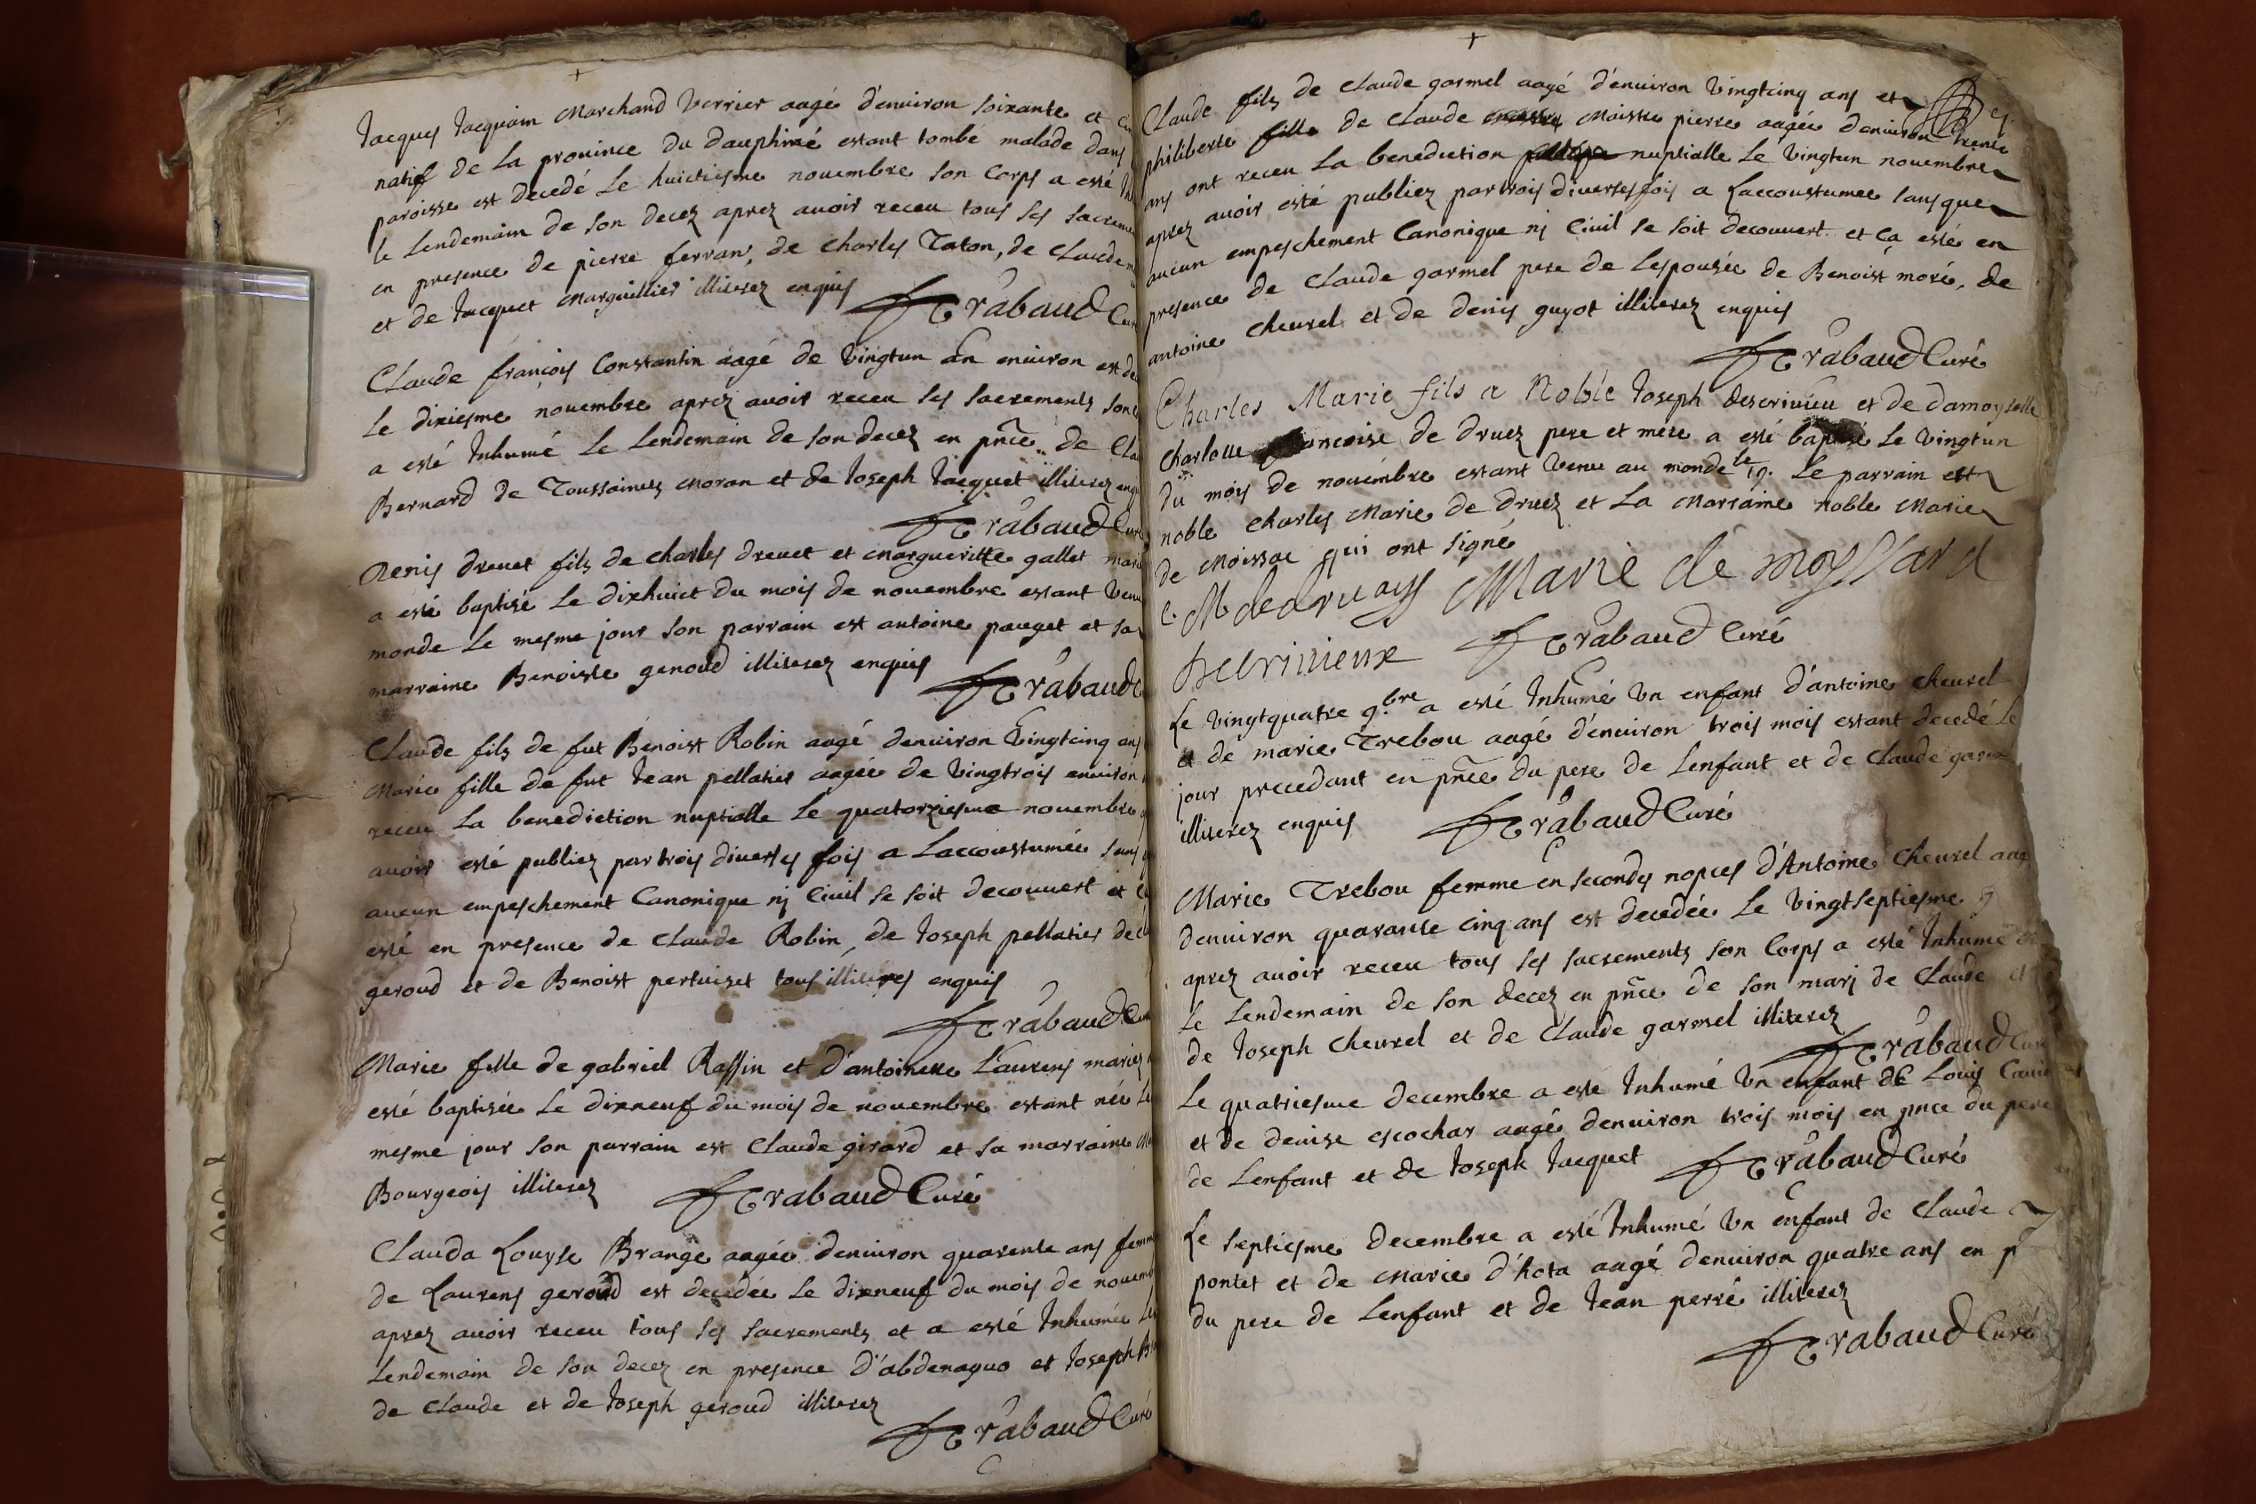 Jacques Jacquain Marchand Verrier aagé d'enuiron soixante et
natif de La prouince du dauphiné estant tombé malade dans
paroisse est decedé Le huictiesme nouembre son Corps a esté
le Lendemain de son decez aprez auoir receu tous ses sacremen
en presence de pierre ferran, de charles Taton, de Claude
et de Jacquet Marguillier illiterez enquis
Trabaud Cur
Claude françois Constantin aagé de Vingtun an enuiron est de
Le dixiesme nouembre aprez auoir receu ses sacrements son
a esté Inhumé Le Lendemain de son decez en pnce de Cla
Bernard de Toussaincts Moran et de Joseph Jacquet illiterez enq
Trabaud Cur
Denis dreuet fils de charles dreuet et Margueritte gallet mari
a esté baptisé Le dixhuict du mois de nouembre estant Venu
monde Le mesme jour son parrain est antoine pauget et sa
marraine Benoiste genoud illiterez enquis
Trabaud C
Claude fils de fut Benoist Robin aagé denuiron Vingtcinq ans
Marie fille de fut Jean pellatier aagée de Vingtrois enuiron
receu La benediction nuptialle Le quatorziesme nouembre
auoir esté publiez par trois diuerses fois a Laccoustumée sans
aucun empeschement Canonique nj Ciuil se soit decouuert et
esté en presence de Claude Robin, de Joseph pellatier de
geroud et de Benoist pertuiset tous illiteres enquis
Trabaud Cu
Marie fille de gabriel Raffin et d'antoinette Laurens mariez
esté baptisée Le dixneuf du mois de nouembre estant née Le
mesme jour son parrain est Claude girard et sa marraine
Bourgeois illiterez Trabaud Curé
Clauda Louyse Brange aagée denuiron quarente ans femme
de Laurens geroud est decedée Le dixneuf du mois de nouem
aprez auoir receu tous ses sacrements et a esté Inhumée Le
Lendemain de son decez en presence d'abdenaguo et Joseph
de Claude et de Joseph geroud illiterez
Trabaud Curé
Claude fils de Claude garmel aagé d'enuiron Vingtcinq ans et
philiberte fille de Claude Moiste pierre aagée denuiron trente
ans ont receu La benediction nuptialle Le Vingtun nouembre
aprez auoir esté publiez par trois diuerses fois a Laccoustumee sans que
aucun empeschement Canonique nj Ciuil se soit decouuert et ca esté en
presence de Claude garmel pere de Lespousée de Benoist moré, de
antoine cheurel et de denis guyot illiterez enquis
Trabaud Curé
Charles Marie fils a Noble Joseph descriuieu et de damoyselle
Charlotte francoise de druez pere et mere a esté baptisé Le Vingtun
du mois de nouembre estant Venu au monde le 19. Le parrain est
noble Charles Marie de druez et La Marraine noble Marie
de Moissac qui ont signé
C. M dedruays Marie de moyssard
Descriuieux Trabaud Curé
Le Vingtquatre 9.bre a esté Inhumé Vn enfant d'antoine cheurel
et de marie Trebou aagé d'enuiron trois mois estant decedé Le
jour precedant en pnce du pere de Lenfant et de Claude
illiterez enquis Trabaud Curé
Marie Trebou femme en secondes nopces d'Antoine Cheurel aag
denuiron quarante cinq ans est decedée Le Vingtseptiesme 9
aprez auoir receu tous ses sacrements son Corps a esté Inhumé
Le Lendemain de son decez en pnce de son marj de Claude
de Joseph Cheurel et de Claude garmel illiterez
Trabaud Cur
Le quatriesme decembre a esté Inhumé Vn enfant de Louis
et de denise escochar aagé denuiron trois mois en pnce du pere
de Lenfant et de Joseph Jacquet Trabaud Curé
Le septiesme decembre a esté Inhumé Vn enfant de Claude
pontet et de Marie d'hota aagé denuiron quatre ans en p
du pere de Lenfant et de Jean perré illiterez
Trabaud Curé